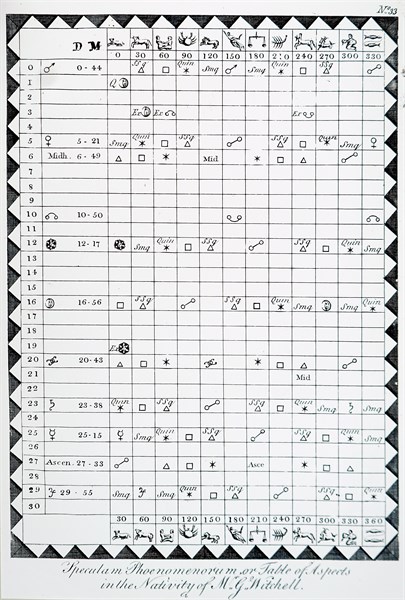 Nº 33
D M
0 30 60 90 120 150 180 210 240 270 300 330
0 ♂ 0 - 44 □ SSq △ □ Quin ✶ Smq ♂ Smq Quin ✶ □ SSq △ ☍
1 Q
2
3 Ec Ec ☊ Ec
4
5 ♀ 5 - 21 Smq Quin ✶ □ SSq △ ☍ SSq △ □ Quin ✶ Smq ♀
6 Midh. 6 - 49 △ □ ✶ Mid ✶ □ △ ☍
7
8
9
10 ☊ 10 - 50 ☋ ☊
11
12 12 - 17 Smq Quin ✶ □ SSq △ ☍ SSq △ □ Quin ✶ Smq
13
14
15
16 16 - 56 □ SSq △ ☍ SSq △ □ Quin ✶ Smq Smq Quin ✶
17
18
19 Ec
20 20 - 43 △ □ ✶ ✶ □ △ ☍
21 Mid
22
23 ♄ 23 - 38 Quin ✶ □ SSq △ ☍ SSq △ □ Quin ✶ Smq ♄ Smq
24
25 ☿ 25 - 15 ☿ Smq Quin ✶ □ SSq △ ☍ SSq △ □ Quin ✶ Smq
26
27 Ascen. 27 - 33 ☍ △ □ ✶ Asce ✶ □ △
28
29 ♃ 29 - 55 Smq ♃ Smq Quin ✶ □ SSq △ ☍ SSq △ □ Quin ✶
30
30 60 90 120 150 180 210 240 270 300 330 360
Speculum Phoenomenorum, or Table of Aspects
in the Nativity of Mr. G. Witchell.